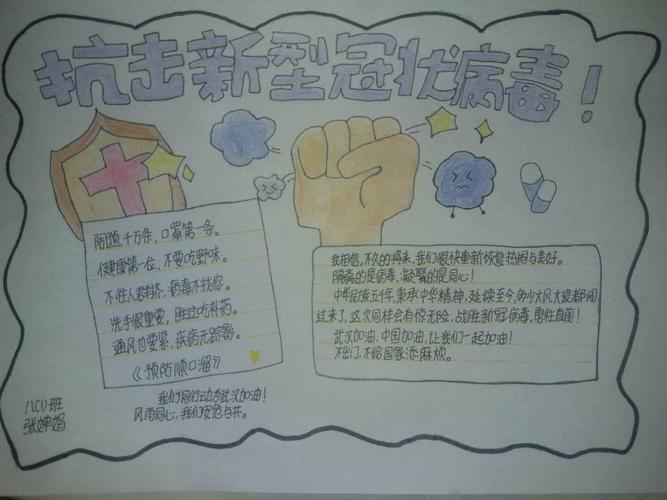 抗击新型冠状病毒！
防疫千万条，口罩第一条。
健康第一位，不要吃野味。
不往人群挤，病毒不找你。
洗手很重要，胜过吃补药。
通风也要紧，疾病无踪影。
《预防顺口溜》
我们同行动为武汉加油！
风雨同心，我们安危与共。
我相信，不久的将来，我们很快重新恢复热闹与美好。
隔离的是病毒，凝聚的是同心！
中华民族五千年，秉承中华精神，延续至今，多少大风大浪都闯
过来了，这次同样会有惊无险，战胜新冠病毒，勇往直前！
武汉加油，中国加油，让我们一起加油！
不出门，不给国家添麻烦。
班
张婵娟